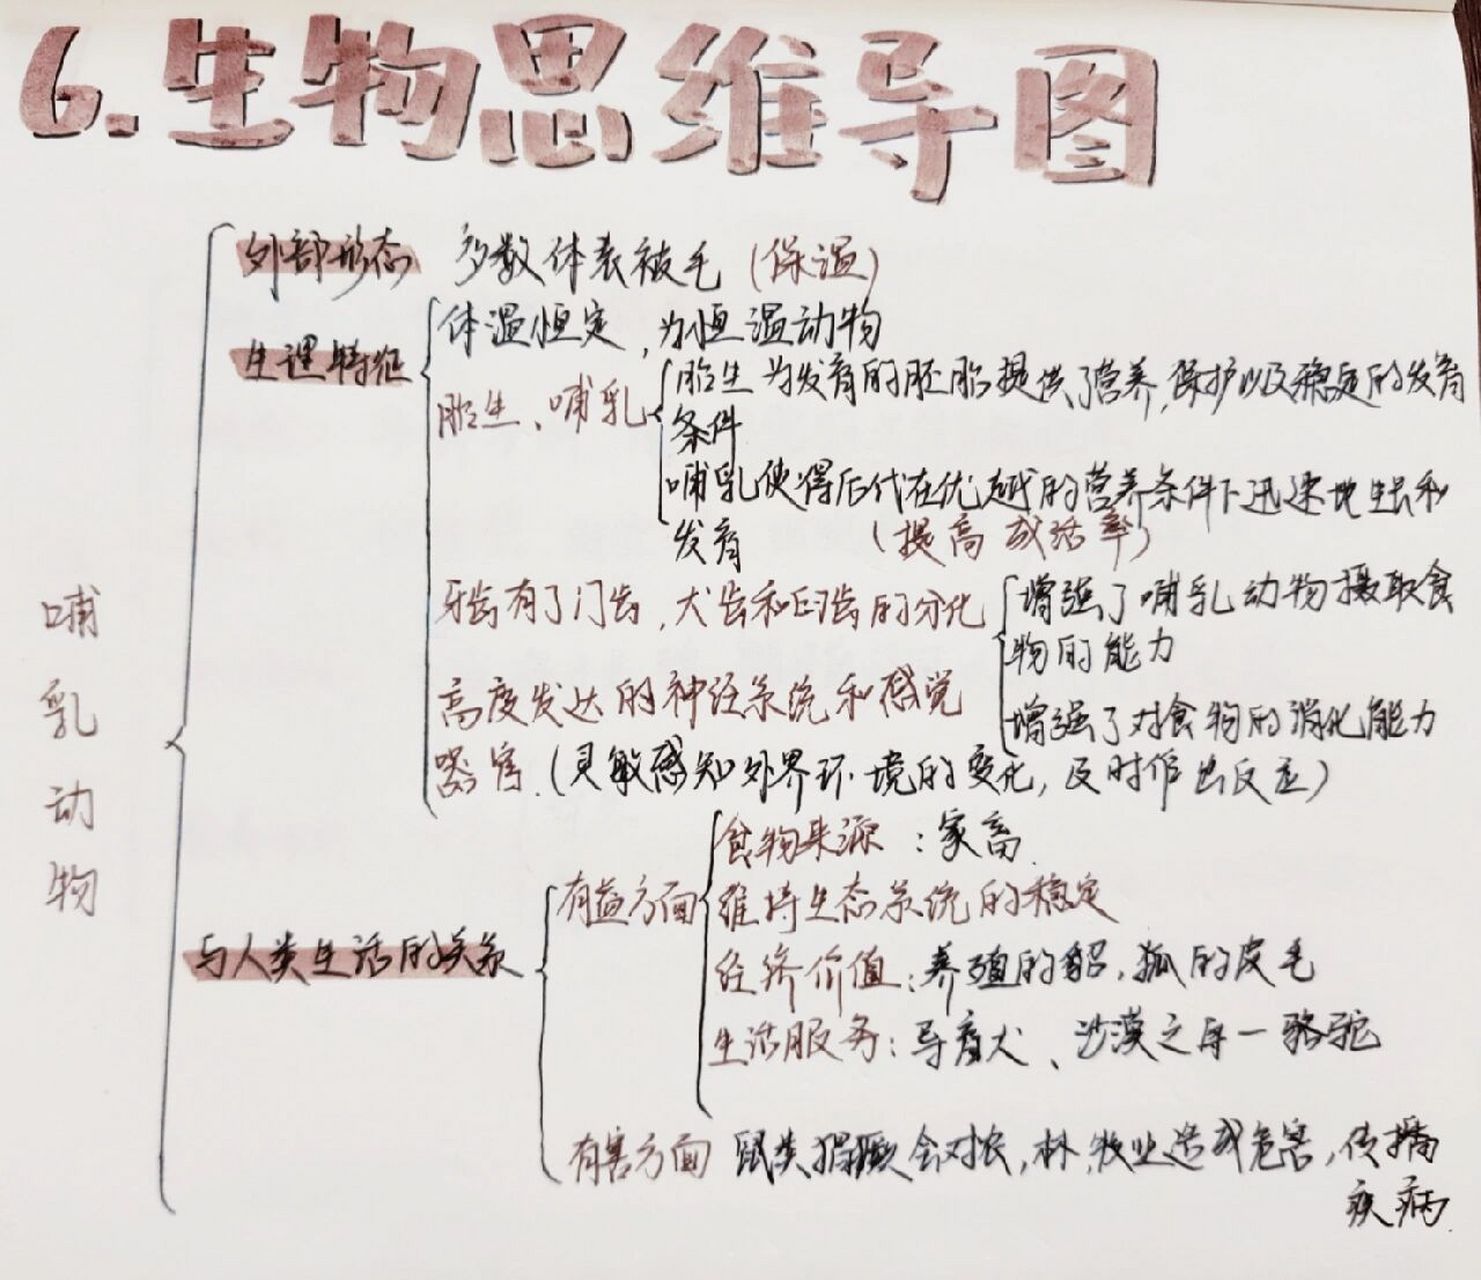 6.生物思维导图
外部形态 多数体表被毛(保温)
生理特征
体温恒定,为恒温动物
胎生、哺乳
胎生为发育的胚胎提供了营养,保护以及稳定的发育
条件
哺乳使得后代在优越的营养条件下迅速地生长和
发育 (提高成活率)
牙齿有了门齿,犬齿和臼齿的分化
增强了哺乳动物摄取食
物的能力
增强了对食物的消化能力
高度发达的神经系统和感觉
器官.(灵敏感知外界环境的变化,及时作出反应)
哺乳动物
与人类生活的关系
有益方面
食物来源:家畜.
维持生态系统的稳定
经济价值:养殖的貂,狐的皮毛
生活服务:导盲犬、沙漠之舟一骆驼
有害方面 鼠类猖獗会对农,林,牧业造成危害,传播
疾病.